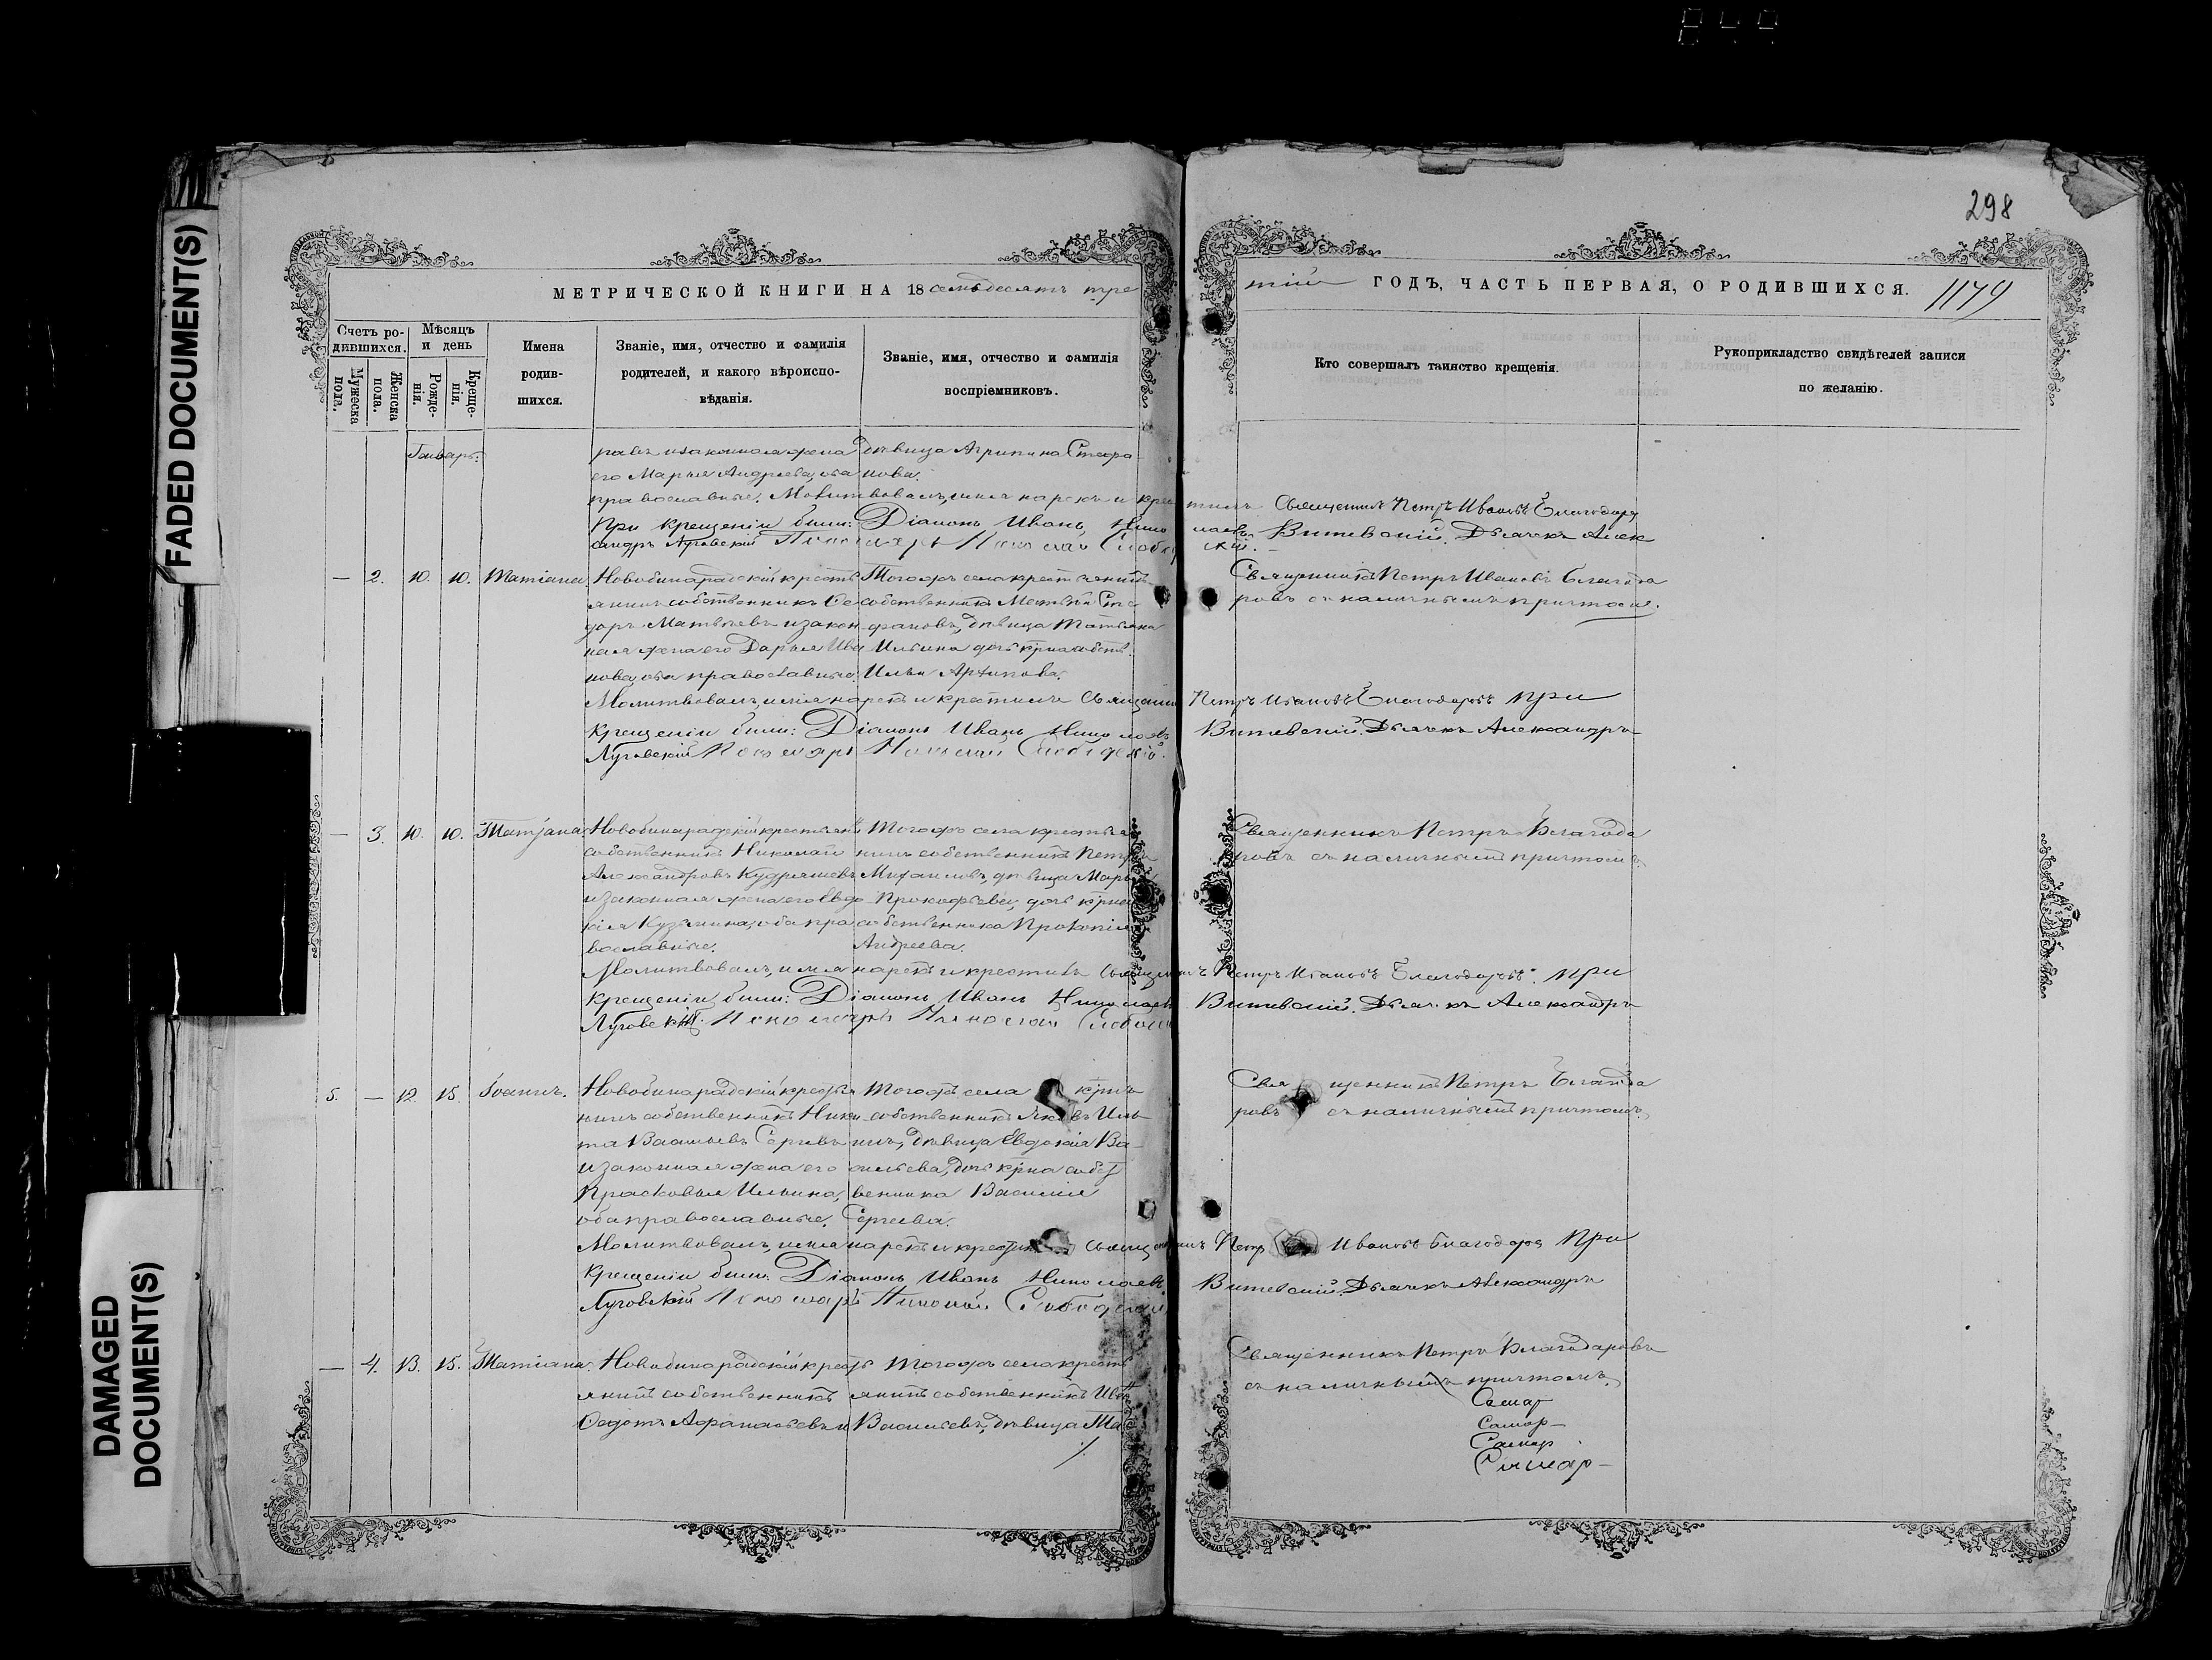 FADED DOCUMENT(S)
DAMAGED
DOCUMENT(S)
298
1179
МЕТРИЧЕСКОЙ КНИГИ НА 18 семьдесятъ тре
тій ГОДЪ, ЧАСТЬ ПЕРВАЯ, О РОДИВШИХСЯ.
Счетъ ро-
дившихся.
Мужеска
пола.
Женска
пола.
Мѣсяцъ
и день
Рожде-
нія.
Креще-
нія.
Имена
родив-
шихся.
Званіе, имя, отчество и фамилія
родителей, и какого вѣроиспо-
вѣданія.
Званіе, имя, отчество и фамилія
воспріемниковъ.
Кто совершалъ таинство крещенія.
Рукоприкладство свидѣтелей записи
по желанію.
Январь.
ровъ и законная жена
его Марья Андреева, оба
православные.
дѣвица Агрипина Стефа
нова.
Молитвовалъ, имя нарекъ и крес тилъ Священникъ Петръ Ивановъ Благодаро
При крещеніи были: Діаконъ Иванъ Нико лаевъ Витевскій. Дьячекъ Алек
сандръ Луговскій Пономарь Николай Слобод скій.
— 2. 10. 10. Татіана
Новобинарадскій крестья
янинъ собственникъ Ѳе
доръ Матвѣевъ и закон
ная жена его Дарья Ива
нова, оба православные.
Тогожъ села крестьянинъ
собственникъ Матвѣй Сте
фановъ, дѣвица Татьяна
Ильина дочь крна собств.
Ильи Архипова.
Священникъ Петръ Ивановъ Благода
ровъ съ наличнымъ причтомъ.
Молитвовалъ, имя нарекъ и крестилъ Священн Петръ Ивановъ Благодаровъ При
крещеніи были: Діаконъ Иванъ Николаевъ Витевскій. Дьячекъ Александръ
Луговскій Пономарь Николай Слободскій.
— 3. 10. 10. Татjана
Новобинарадскій крестьянъ
собственникъ Николай
Александровъ Кудряшевъ
и законная жена его Евдо
кія Кузьмина, оба пра
вославные.
Тогожъ села крестья
нинъ собственникъ Петръ
Михаиловъ, дѣвица Марья
Прокофьева, дочь крна
собственника Прокопія
Андреева.
Священникъ Петръ Благода
ровъ съ наличнымъ причтомъ.
Молитвовалъ, имя нарекъ и крестилъ Священникъ Петръ Ивановъ Благодаровъ. При
крещеніи были: Діаконъ Иванъ Николаевъ Витевскій. Дьячекъ Александръ
Луговскій. Пономарь Николай Слобод
5. — 12. 15. Іоаннъ.
Новобинарадскій крестья
нинъ собственникъ Ники
та Васильевъ Сергѣевъ
и законная жена его
Прасковья Ильина,
оба православные.
Тогожъ села крнъ
собственникъ Яковъ Иль
инъ, дѣвица Евдокія Ва-
сильева, дочь крна собст
венника Василія
Сергеева.
Священникъ Петръ Благода
ровъ съ наличнымъ причтомъ.
Молитвовалъ, имя нарекъ и крестилъ Священникъ Петръ Ивановъ Благодаро При
крещеніи были: Діаконъ Иванъ Николаевъ Витевскій. Дьячекъ Александръ
Луговскій Пономарь Николай Слободскій
— 4. 13. 15. Татіана.
Новобинарадскій кресть
янинъ собственникъ
Ѳедотъ Афанасьевъ и
Тогожъ села кресть
янинъ собственникъ Иванъ
Васильевъ, дѣвица Тать
./.
Священникъ Петръ Благодаровъ
съ наличнымъ причтомъ.
Самар
Самар—
Самар
Самар—